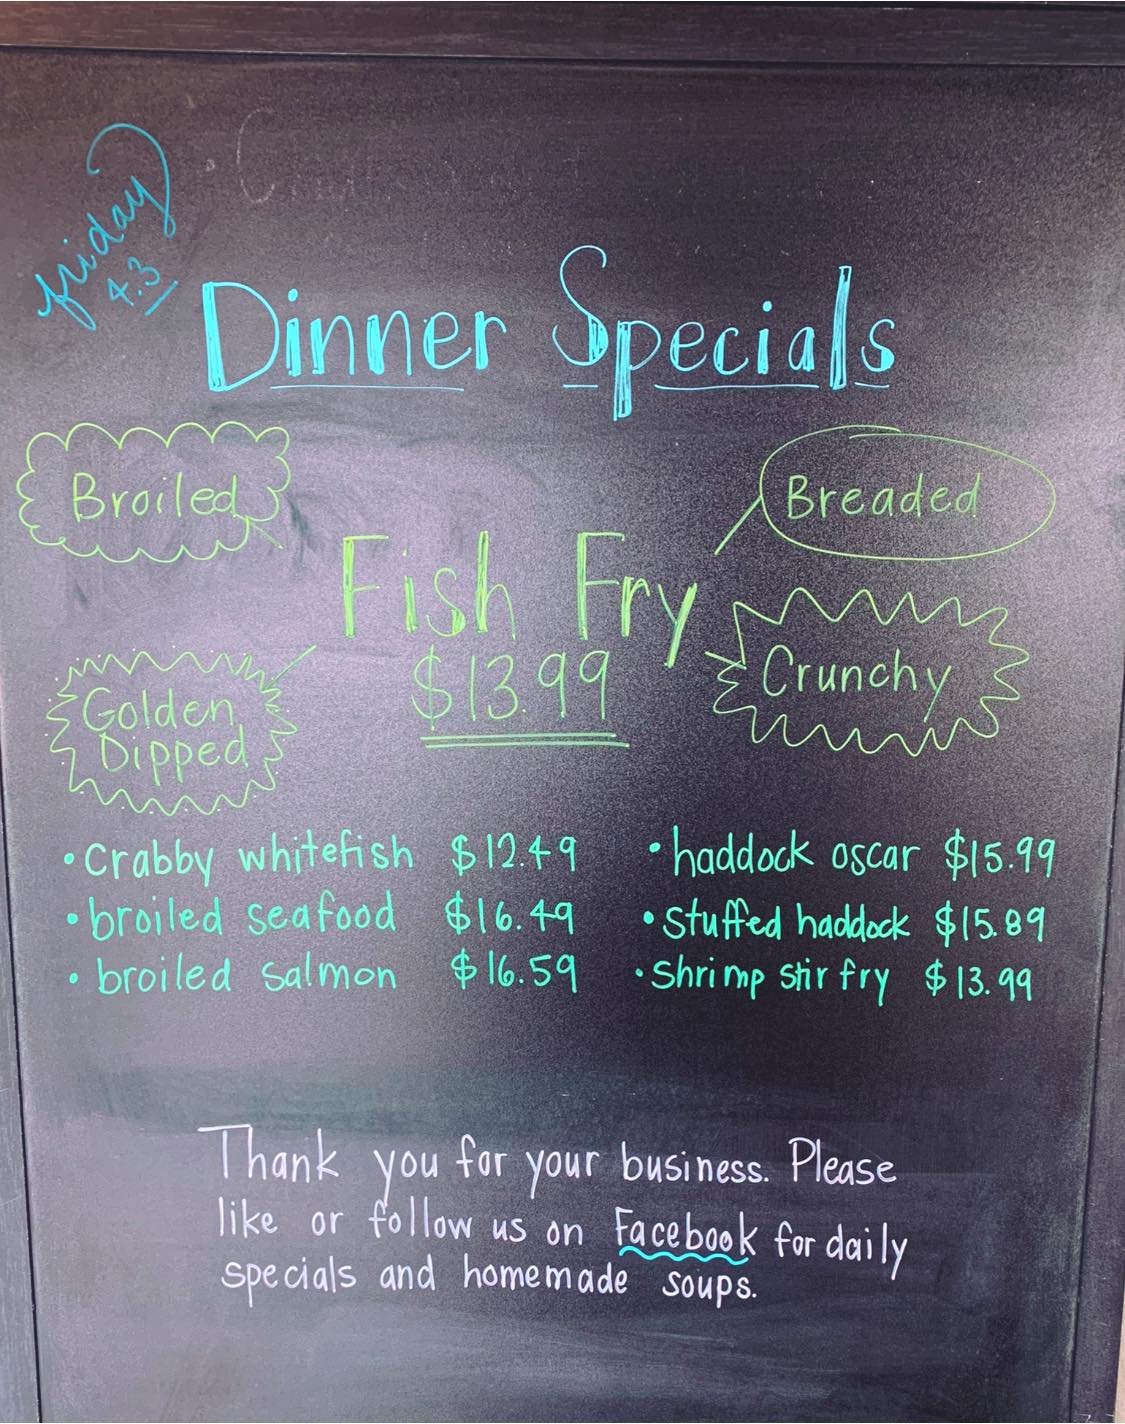 friday
4.3
Dinner Specials
Broiled
Breaded
Fish Fry
$13.99
Golden
Dipped
Crunchy
• Crabby whitefish $12.49
• haddock oscar $15.99
• broiled seafood $16.49
• Stuffed haddock $15.89
• broiled salmon $16.59
• Shrimp stir fry $13.99
Thank you for your business. Please
like or follow us on Facebook for daily
specials and homemade soups.